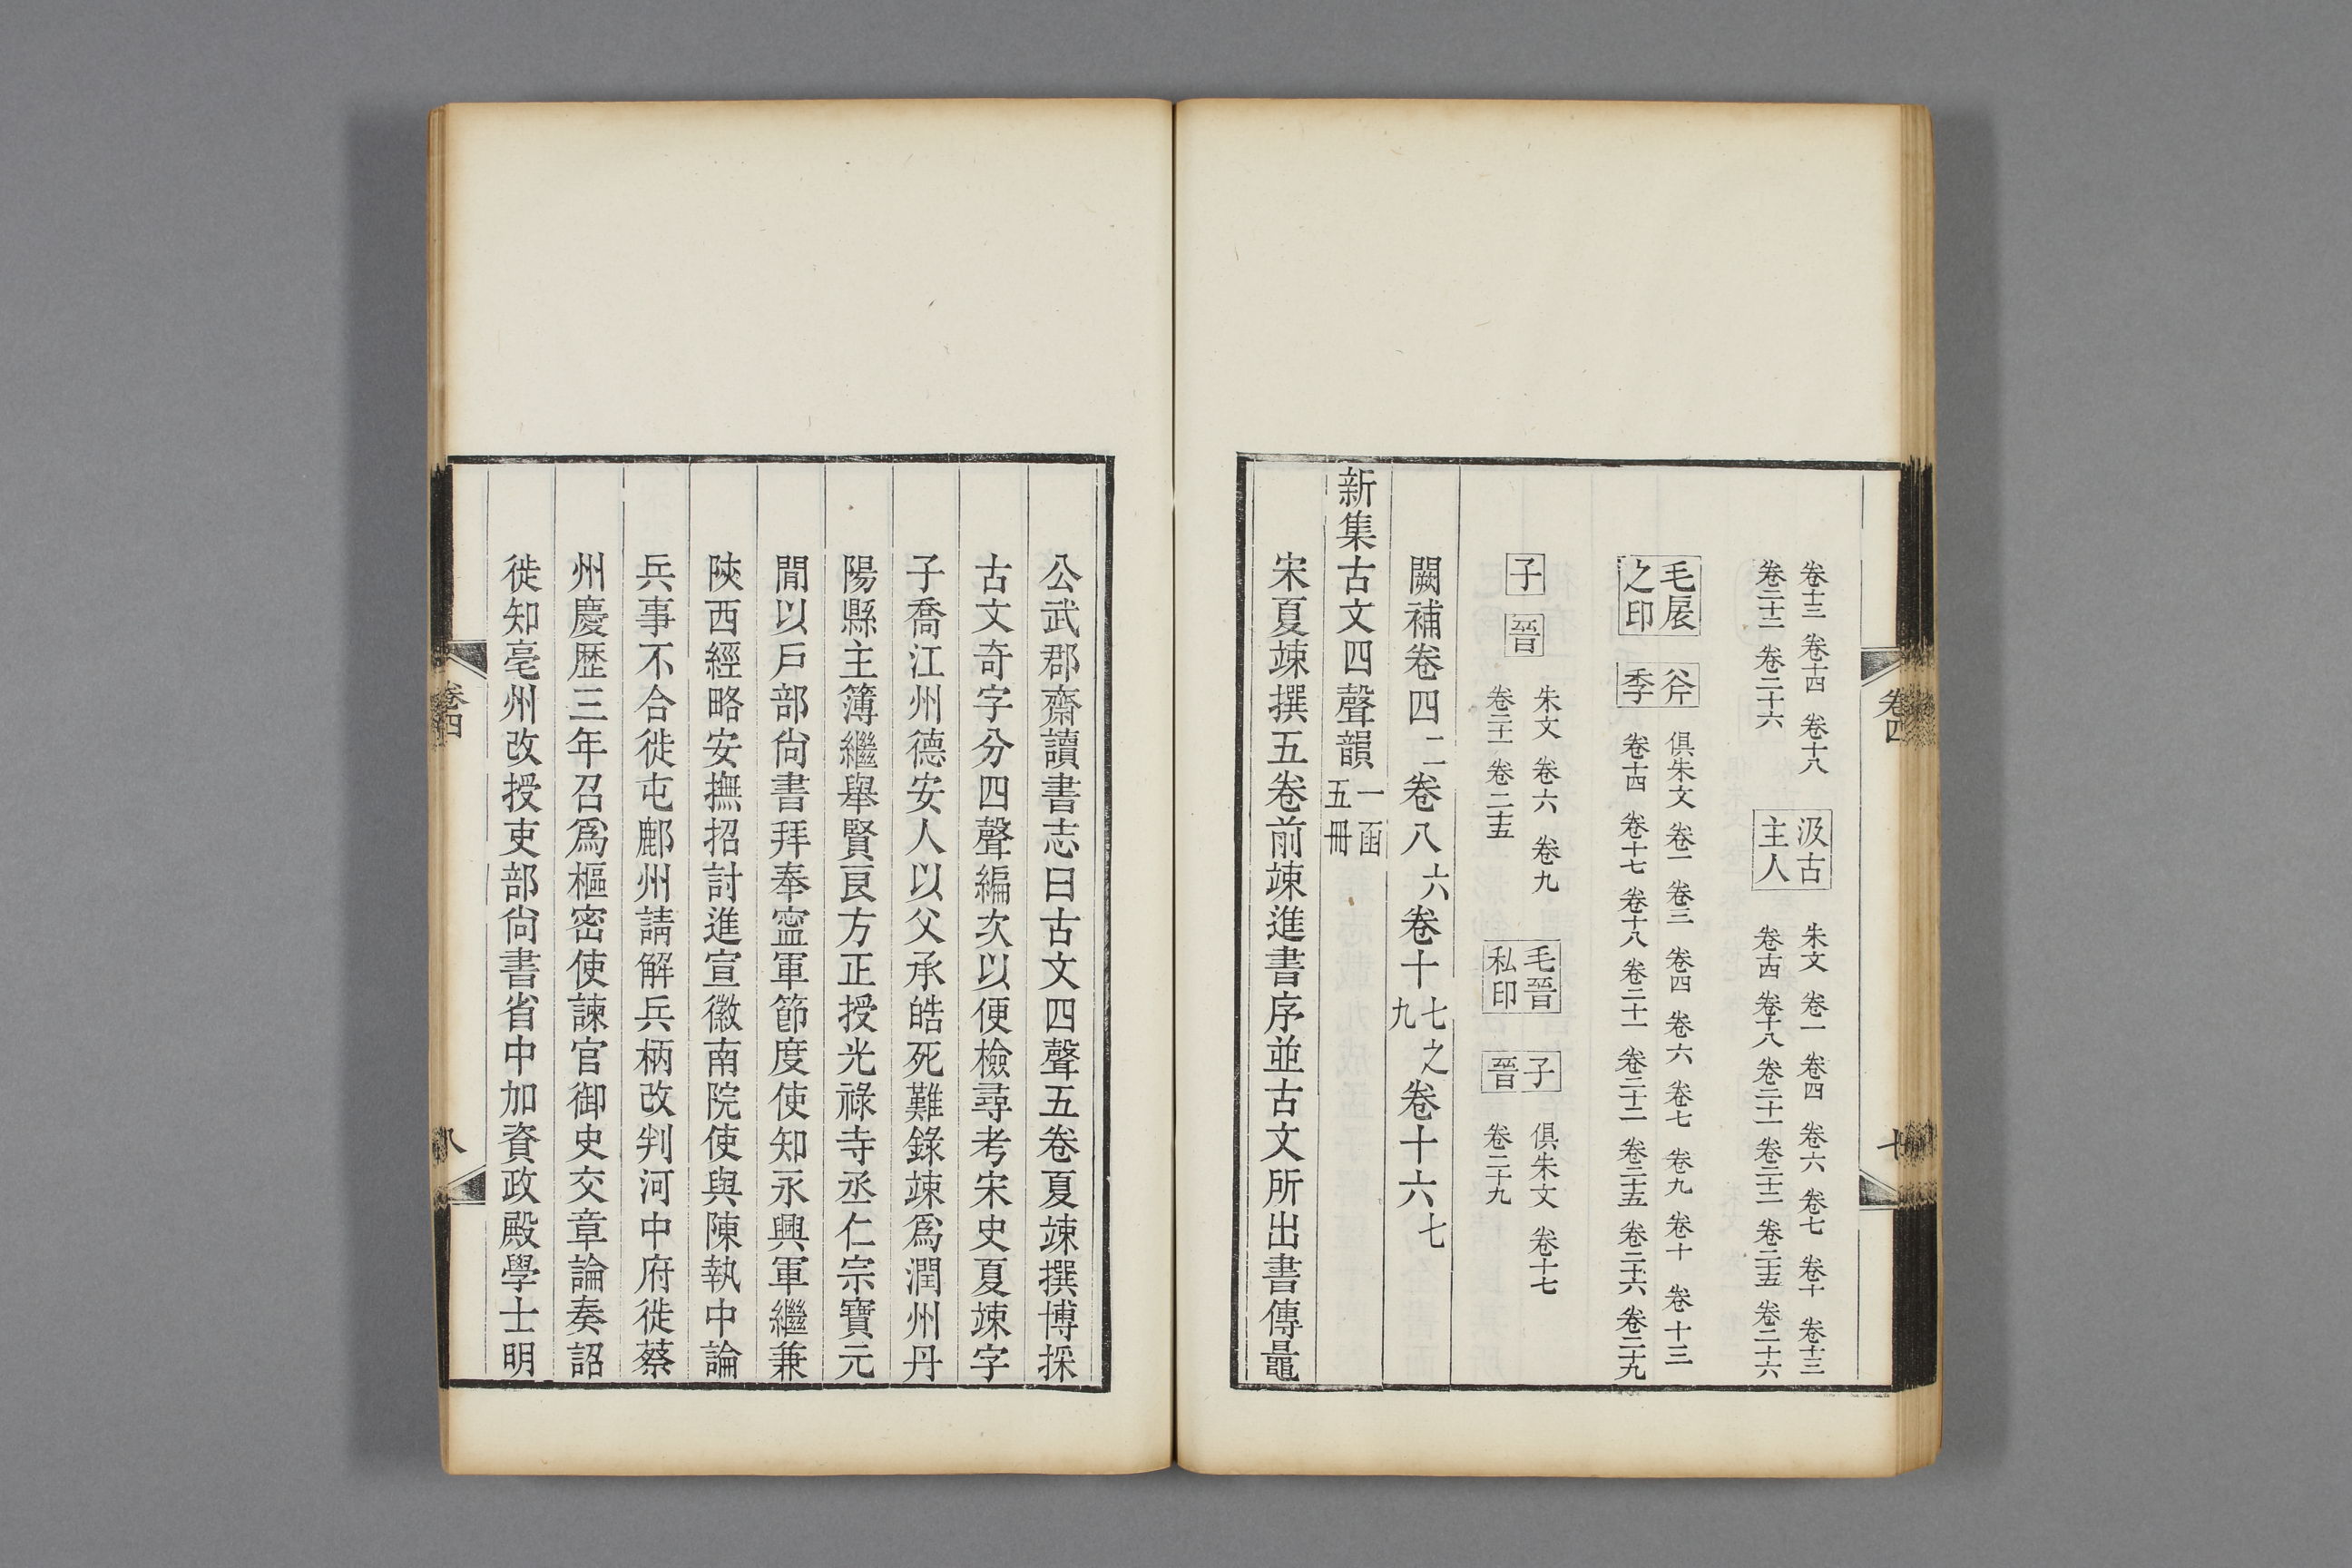 卷十三 卷十四 卷十八
卷二十二 卷二十六
汲古
主人
朱文 卷一 卷四 卷六 卷七 卷十 卷十三
卷十四 卷十八 卷二十一 卷二十二 卷二十五 卷二十六
毛扆
之印
斧
季
俱朱文 卷一 卷三 卷四 卷六 卷七 卷九 卷十 卷十三
卷十四 卷十七 卷十八 卷二十一 卷二十二 卷二十五 卷二十六 卷二十九
子
晉
朱文 卷六 卷九
卷二十一 卷二十五
毛晉
私印
子
晉
俱朱文 卷十七
卷二十九
闕補卷四二卷八六卷十七之九卷十六七
新集古文四聲韻一函五冊
宋夏竦撰五卷前竦進書序並古文所出書傳鼂
卷四
公武郡齋讀書志曰古文四聲五卷夏竦撰博採
古文奇字分四聲編次以便檢尋考宋史夏竦字
子喬江州德安人以父承皓死難錄竦爲潤州丹
陽縣主簿繼舉賢良方正授光祿寺丞仁宗寶元
閒以戶部尙書拜奉寧軍節度使知永興軍繼兼
陝西經略安撫招討進宣徽南院使與陳執中論
兵事不合徙屯鄜州請解兵柄改判河中府徙蔡
州慶歷三年召爲樞密使諫官御史交章論奏詔
徙知亳州改授吏部尙書省中加資政殿學士明
卷四
八